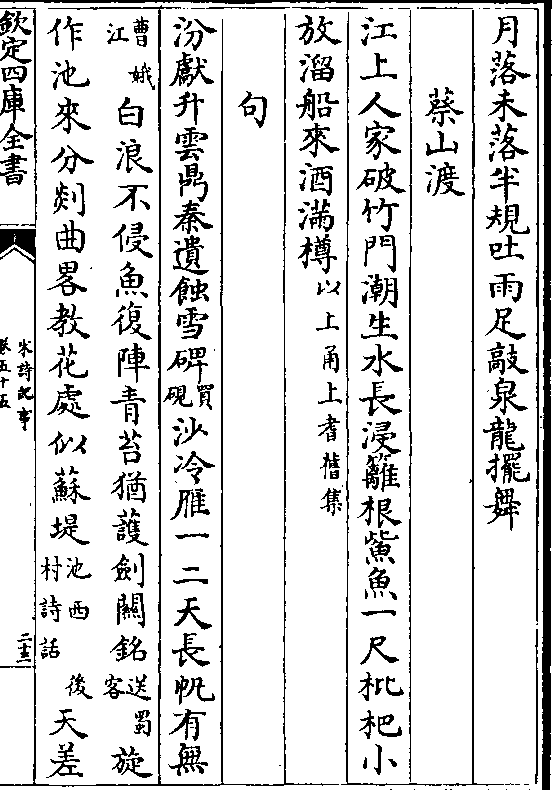 月落未落半規吐雨足敲泉龍擺舞
蔡山渡
江上人家破竹門潮生水長浸籬根鮆魚一尺枇杷小
放溜船來酒滿樽以上甬上耆舊集
句
汾獻升雲鼎秦遺蝕雪碑買硯沙冷雁一二天長帆有無
曹娥江白浪不侵魚復陣青苔猶護劍關銘送蜀客旋
作池來分剡曲畧教花處似蘇堤池西村詩話後天差
欽定四庫全書
宋詩紀事
卷五十五
二十三